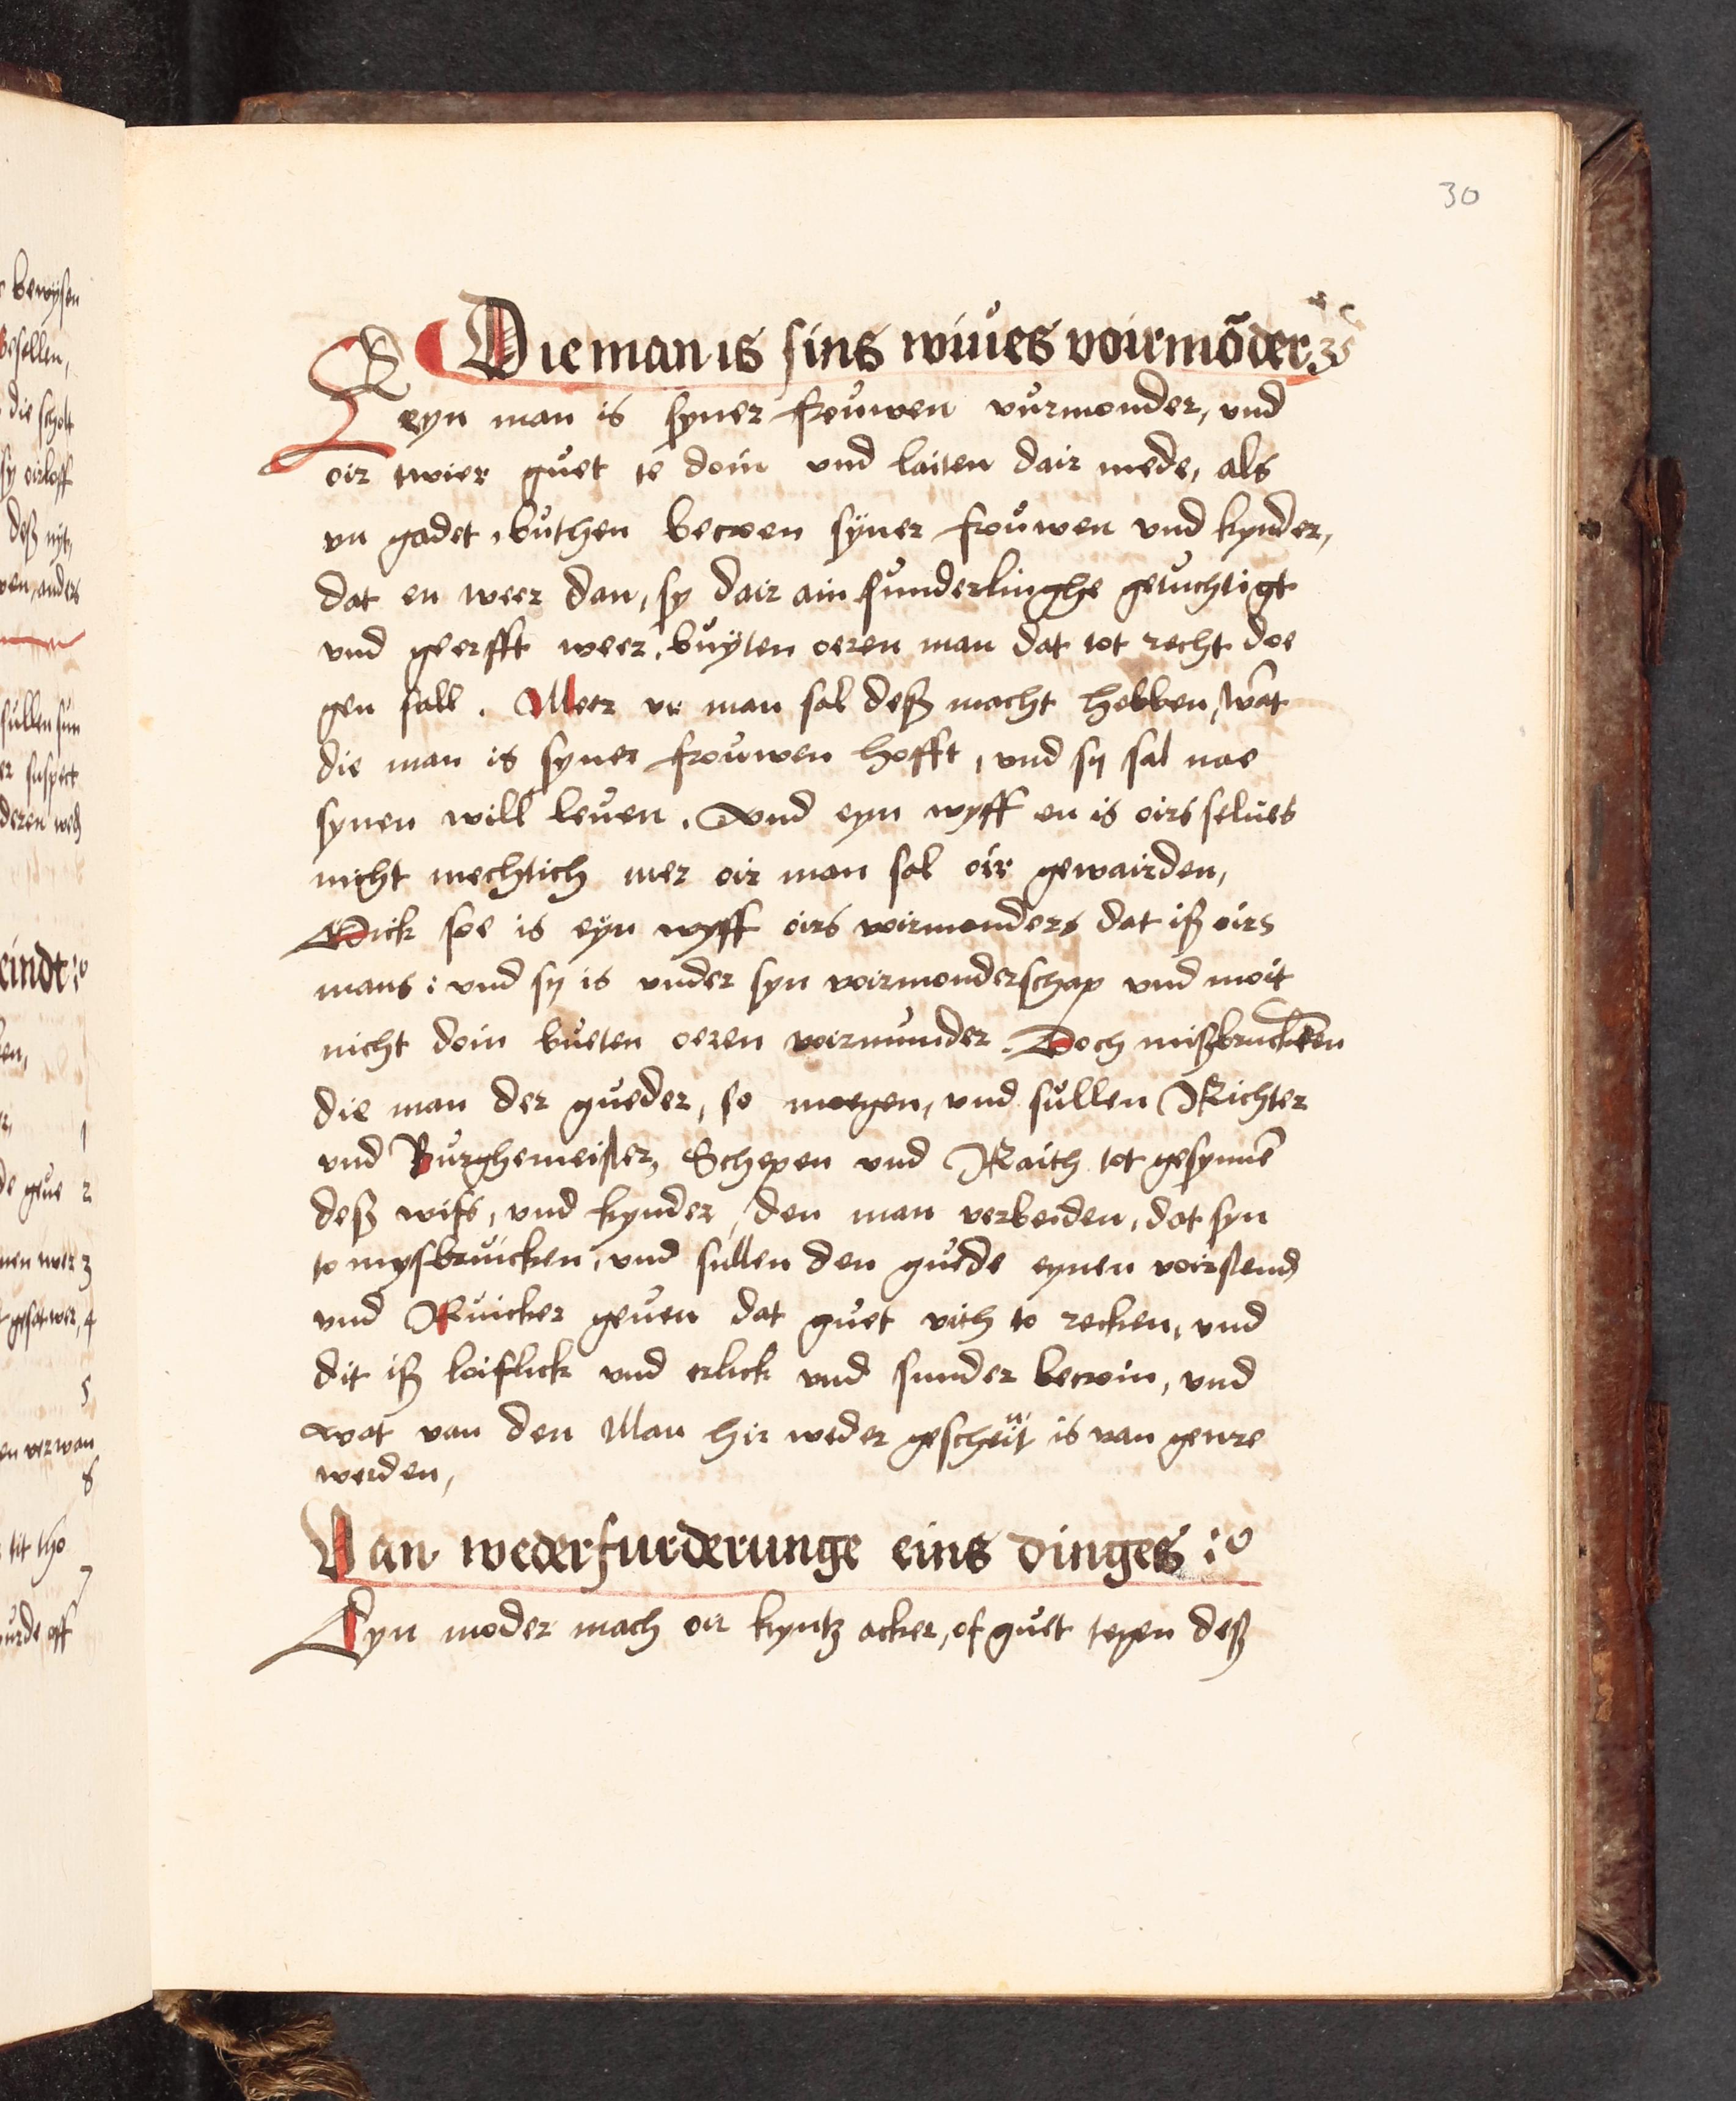 30
Die man is sins wiues voirmõder
Eeyn man is syner frouwen vurmonder, vnd
oir twier guet te doin vnd laiten dair mede, als
vn gadet, buthen becroen syner frouwen vnd kynder,
dat en weer dan, sy dair ain sunderlinghe getuchtigt
vnd geerfft weer, buyten oeren man dat tot recht doe
gen sall. Meer man sal deß macht hebben, wat
die man is syner frouwen hofft, vnd sy sal nae
synen will leuen. Vnd eyn wyff en is oirs selues
nicht mechtich mer oir man sal oir gewairden,
Dick soe is eyn wyff oirs voirmonders dat iß oirs
mans: vnd sy is vnder syn voirmonderschap vnd moit
nicht doin bueten oeren voirmunder. Doch mißbrucken
die man der gueder, so moegen, vnd sullen Richter
vnd Burghemeister, Schepen vnd Raith tot gesynnẽ
deß wifs, vnd kynder, den man verbeiden, dat syn
to mysbruicken, vnd sullen den guede eynen voirstend
vnd Ruicker geuen dat guet vith to recken, vnd
dit iß loiflick vnd erlick vnd sunder becroin, vnd
wat van den Man hir weder gescheit is van genre
werden,
Van wederfurderunge eins dinges :o
Eyn moder mach oir kyntz acker, of guet tegen deß
bewysen
gesellen,
die scholt
sy oirloff
deß nyt,
anders
sullen sun
er suspect
deren
eindt :o
1
geue 2
nen wer 3
4
5
en verwan
6
tit tho
7
urde off